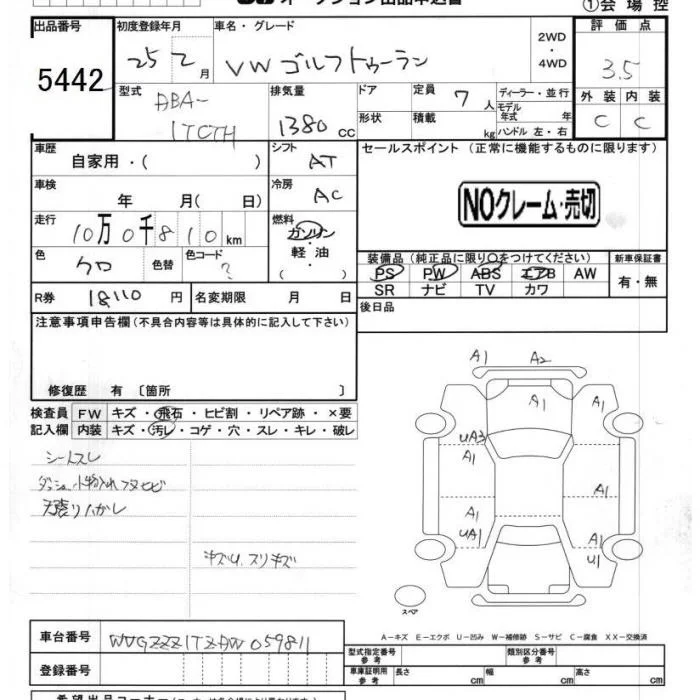 オークション出品申込書
①会場控
出品番号 5442
初度登録年月 25 2月
車名・グレード VW ゴルフトゥーラン
2WD・4WD
評価点 3.5
型式 ABA-1TCTH
排気量 1380cc
ドア 定員 7人
ディーラー・並行
形状 積載 kg
モデル年式 年
ハンドル 左・右
外装 内装
C C
車歴 自家用・( )
シフト AT
セールスポイント (正常に機能するものに限ります)
NOクレーム・売切
車検 年 月( 日)
冷房 AC
走行 10万0千810km
燃料 ガソリン・軽油・( )
色 クロ 色替 色コード ?
装備品(純正品に限り○をつけてください)
新車保証書
PS PW ABS エアB AW
SR ナビ TV カワ
有・無
R券 18110円
名変期限 月 日
後日品
注意事項申告欄(不具合内容等は具体的に記入して下さい)
修復歴 有〔箇所 〕
検査員記入欄
FW キズ・飛石・ヒビ割・リペア跡・×要
内装 キズ・汚レ・コゲ・穴・スレ・キレ・破レ
シートスレ
ダッシュ小物入れフタヒビ
天張りハガレ
キズU.スリキズ
A1 A2
A1 A1
UA3
A1
A1
A1
UA1
A1
U1
スペア
A－キズ E－エクボ U－凹み W－補修跡 S－サビ C－腐食 XX－交換済
車台番号 WVGZZZ1TZDW059811
登録番号
型式指定番号 参考
類別区分番号 参考
車庫証明用 参考
長さ cm 幅 cm 高さ cm